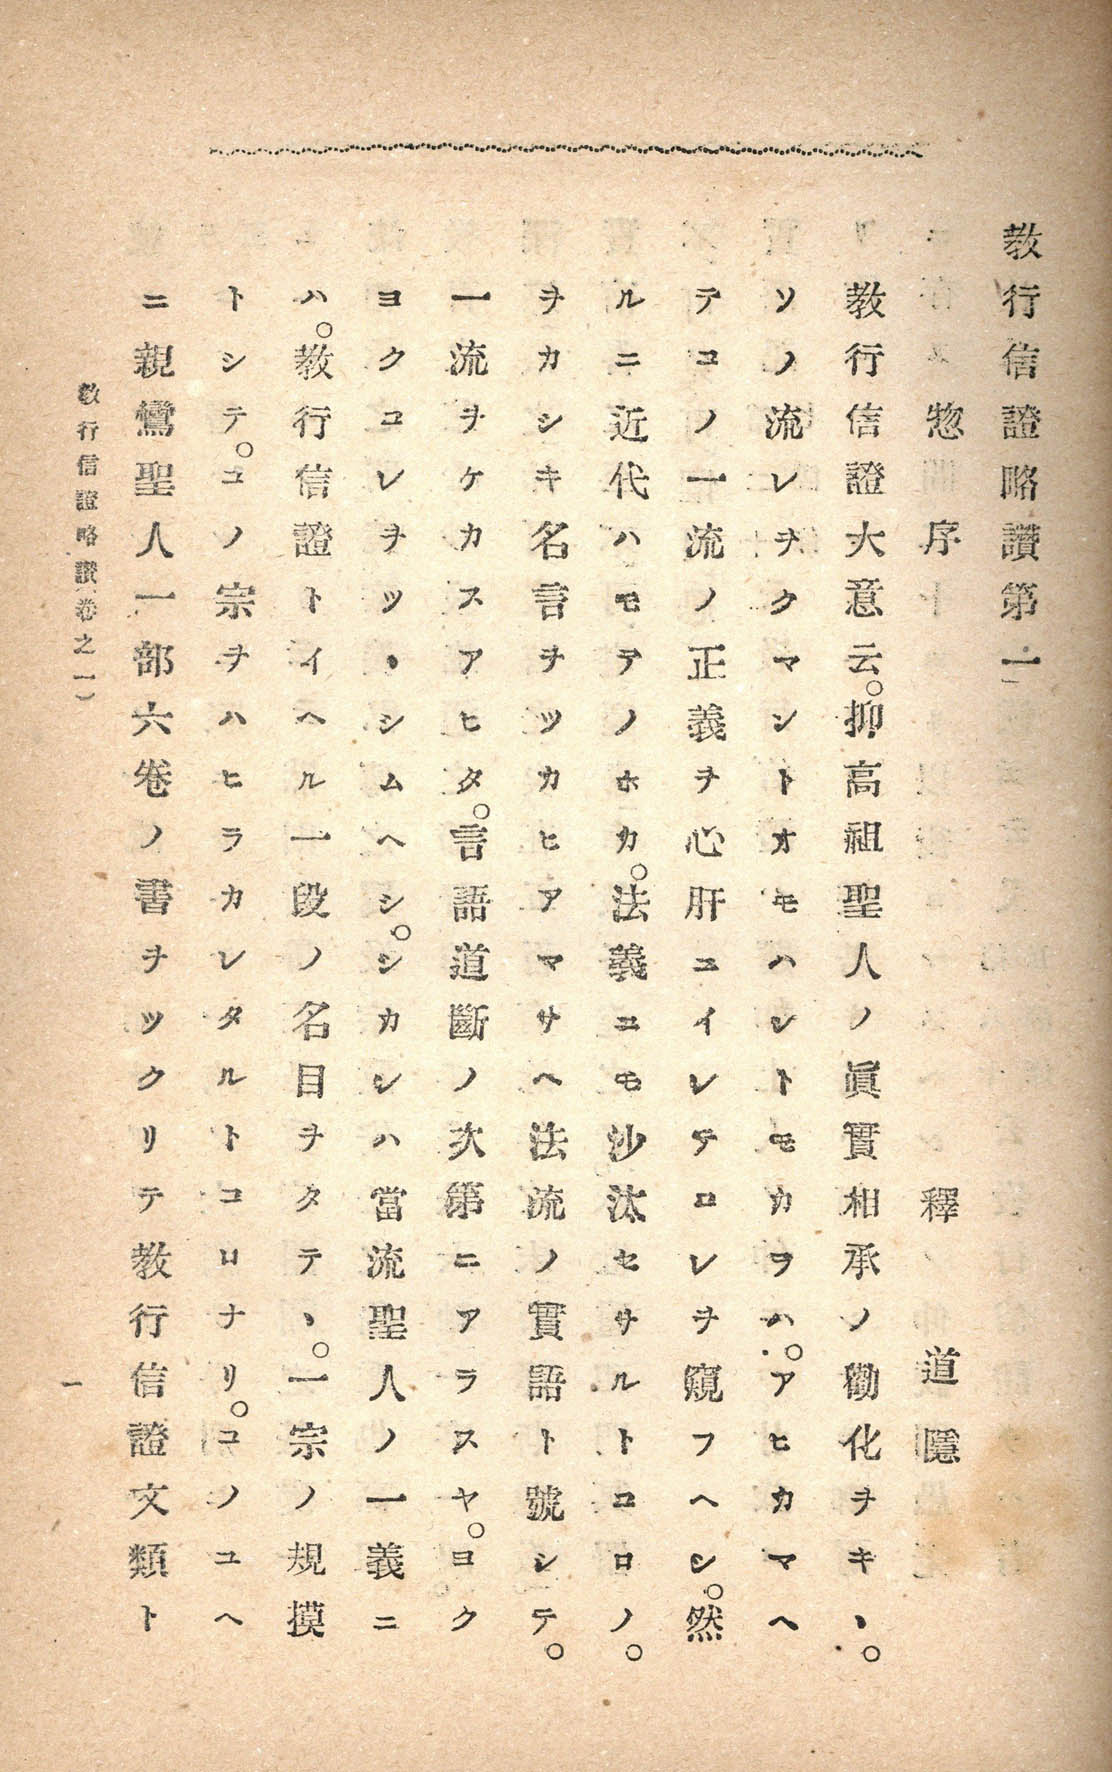 教行信證略讃第一
惣序　釋道隱
教行信證大意云。抑高祖聖人ノ眞實相承ノ勸化ヲキヽ。
ソノ流レヲクマントオモハントモカラハ。アヒカマヘ
テコノ一流ノ正義ヲ心肝ニイレテコレヲ窺フヘシ。然
ルニ近代ハモテノホカ。法義ニモ沙汰セサルトコロノ。
ヲカシキ名言ヲツカヒアマサヘ法流ノ實語ト號シテ。
一流ヲケカスアヒタ。言語道斷ノ次第ニアラスヤ。ヨク
ヨクコレヲツヽシムヘシ。シカレハ當流聖人ノ一義ニ
ハ。教行信證トイヘル一段ノ名目ヲタテヽ。一宗ノ規摸
トシテ。コノ宗ヲハヒラカレタルトコロナリ。コノユヘ
ニ親鸞聖人一部六卷ノ書ヲツクリテ教行信證文類ト
教行信證略讃（卷之一）
一